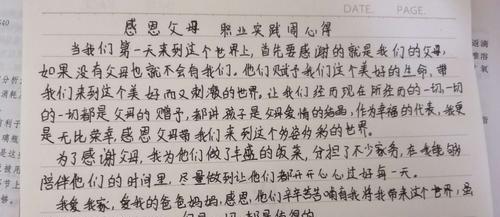 DATE. PAGE.
感恩父母 职业实践周心得
当我们第一天来到这个世界上,首先要感谢的就是我们的父母,
如果没有父母也就不会有我们。他们赋予我们这个美好的生命,带
我们来到这个美好而又刺激的世界。让我们经历现在所经历的一切,一切
的一切都是父母的赠予,都讲孩子是父母爱情的结晶,作为幸福的代表,我更
是无比荣幸,感恩父母带我们来到这个多姿多彩的世界。
为了感谢父母,我为他们做了丰盛的饭菜,分担了不少家务,在我能够
陪伴他们的时间里,尽量做到让他们都开开心心过好每一天。
我爱我家,爱我的爸爸妈妈,感恩,他们辛辛苦苦哺育我将我带来这个世界,虽